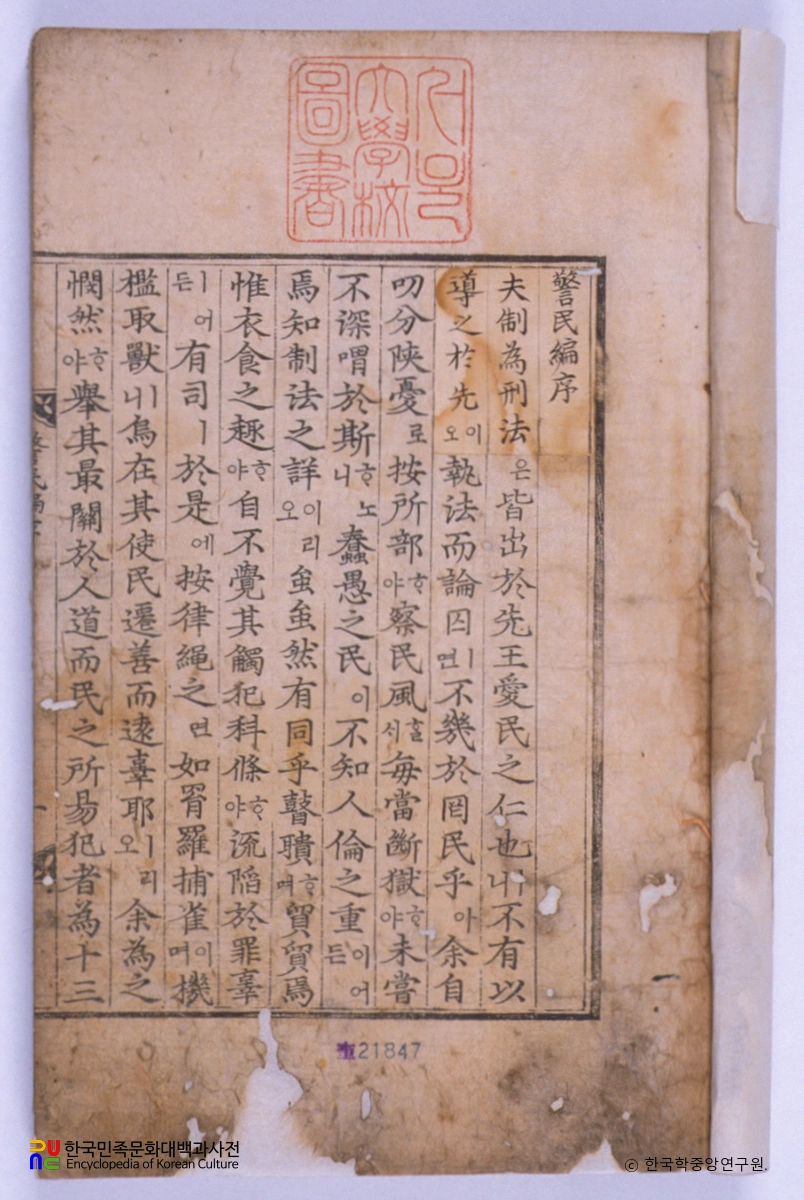 서울
大學校
圖書
警民編序
夫制為刑法은皆出於先王愛民之仁也ㅣ니不有以
導之於先이오執法而論囚ㅣ면不幾於罔民乎아余自
叨分陝憂로按所部ᄒᆞ야察民風ᄒᆞᆯ시每當斷獄ᄒᆞ야未嘗
不深喟於斯ᄒᆞ노니蠢愚之民이不知人倫之重이어든
焉知制法之詳이리오䖝䖝然有同乎瞽聵ᄒᆞ며貿貿焉
惟衣食之趣ᄒᆞ야自不覺其觸犯科條ᄒᆞ야流陷於罪辜
ㅣ어든有司ㅣ於是에按律繩之면如罥羅捕雀이며機
檻取獸ㅣ니烏在其使民遷善而逮辜耶ㅣ리오余為之
憫然ᄒᆞ야擧其最關於人道而民之所易犯者為十三
21847
한국민족문화대백과사전
Encyclopedia of Korean Culture
© 한국학중앙연구원.